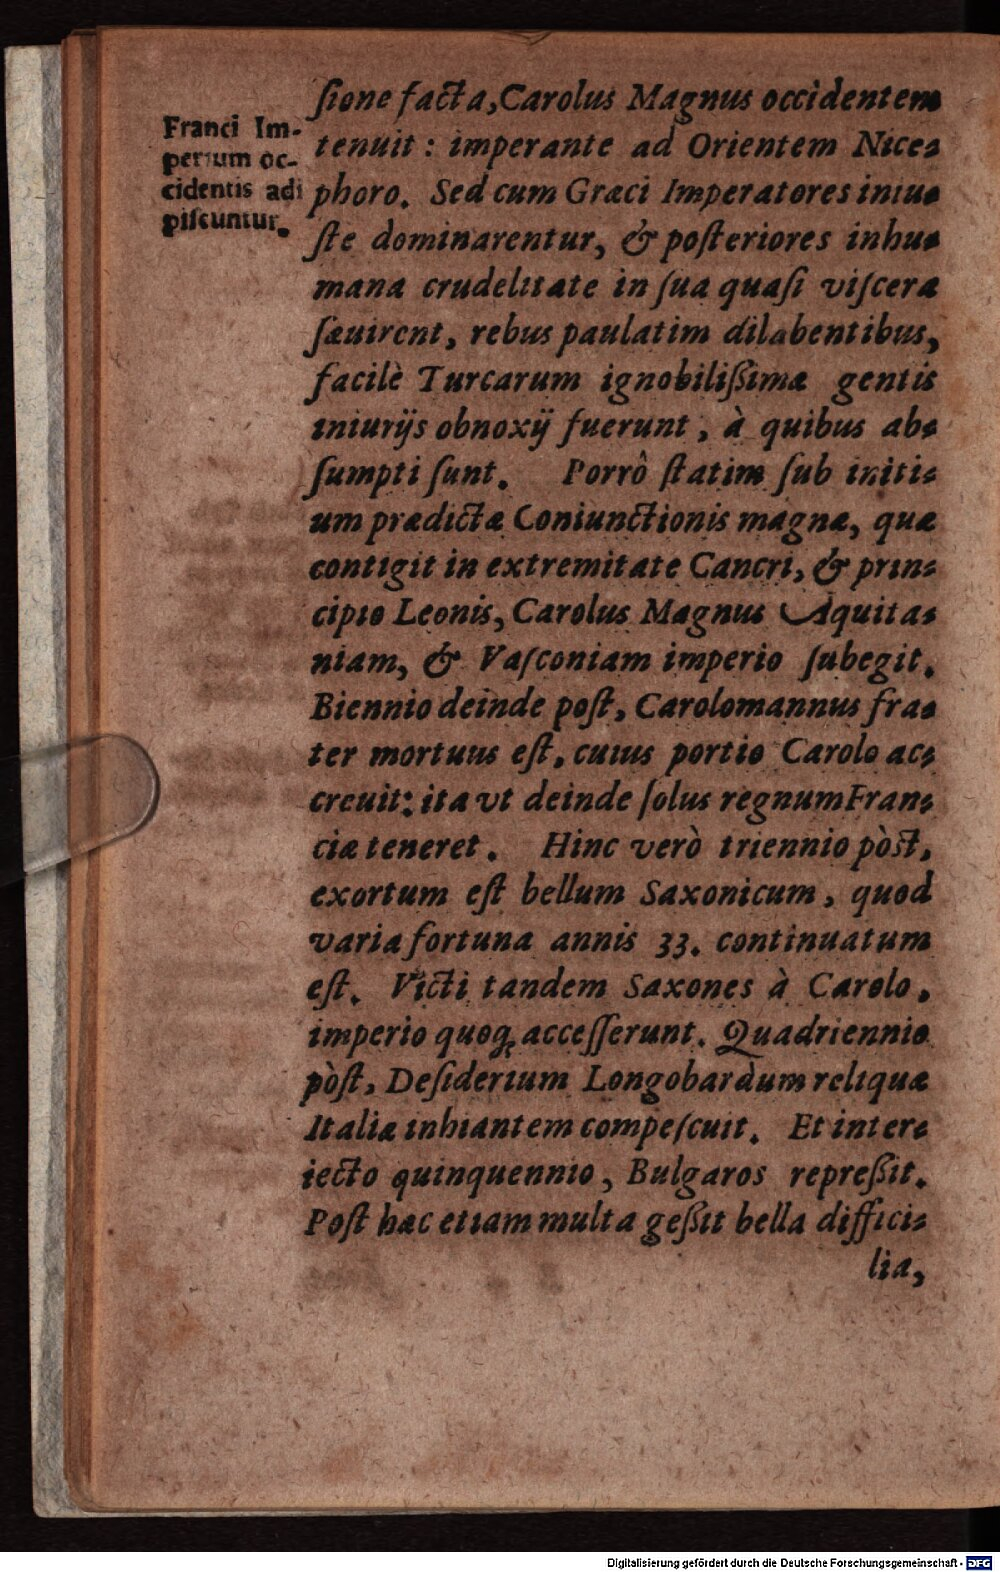 Franci Im-
perium oc-
cidentis adi
piſcuntur.
ſione facta, Carolus Magnus occidentem
tenuit: imperante ad Orientem Nice-
phoro. Sed cum Græci Imperatores iniu-
ſte dominarentur, & poſteriores inhu-
mana crudelitate in ſua quaſi viſcera
ſæuirent, rebus paulatim dilabentibus,
facilè Turcarum ignobilißimæ gentis
iniurijs obnoxij fuerunt, à quibus ab-
ſumpti ſunt. Porrò ſtatim ſub initi-
um prædictæ Coniunctionis magnæ, quæ
contigit in extremitate Cancri, & prin-
cipio Leonis, Carolus Magnus Aquita-
niam, & Vaſconiam imperio ſubegit.
Biennio deinde poſt, Carolomannus fra-
ter mortuus eſt, cuius portio Carolo ac-
creuit: ita vt deinde ſolus regnum Fran-
ciæ teneret. Hinc verò triennio pòſt,
exortum eſt bellum Saxonicum, quod
varia fortuna annis 33. continuatum
eſt. Victi tandem Saxones à Carolo,
imperio quoq; acceſſerunt. Quadriennio
pòſt, Deſiderium Longobardum reliquæ
Italiæ inhiantem compeſcuit. Et inter-
iecto quinquennio, Bulgaros repreßit.
Poſt hæc etiam multa geßit bella diffici-
lia,
Digitalisierung gefördert durch die Deutsche Forschungsgemeinschaft - DFG